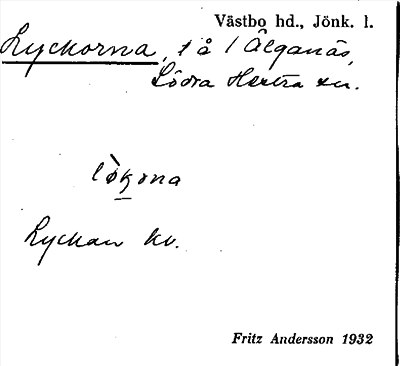 Västbo hd., Jönk. l.
Lyckorna, t å / Älganäs,
Södra Hestra sn.
lø̀kọna
Lyckan kv.
Fritz Andersson 1932